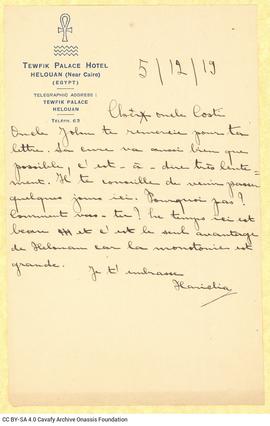 TEWFIK PALACE HOTEL
HELOUAN (Near Cairo)
(EGYPT)
TELEGRAPHIC ADDRESS :
TEWFIK PALACE
HELOUAN
TELEPH. 63
5/12/19
oncle Costi
Oncle John te remercie pour ta
lettre. Sa cure va aussi bien que
possible, c'est-à-dire très lente-
ment. Il te conseille de venir passer
quelques jours ici. Pourquoi pas?
Comment vas-tu? Le temps ici est
beau et c'est le seul avantage
de Helouan car la monotonie est
grande.
Je t'embrasse
Hariclia
CC BY-SA 4.0 Cavafy Archive Onassis Foundation